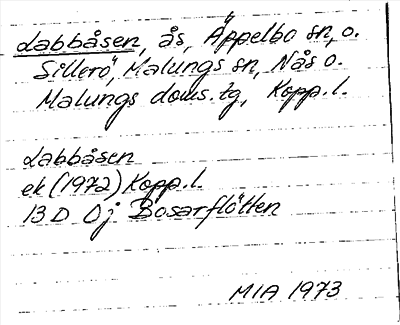 Labbåsen, ås, Äppelbo sn, o.
Sillerö, Malungs sn, Nås o.
Malungs doms.tg, Kopp.l.
Labbåsen
ek (1972) Kopp.l.
13 D 0j Bosarflötten
MIA 1973